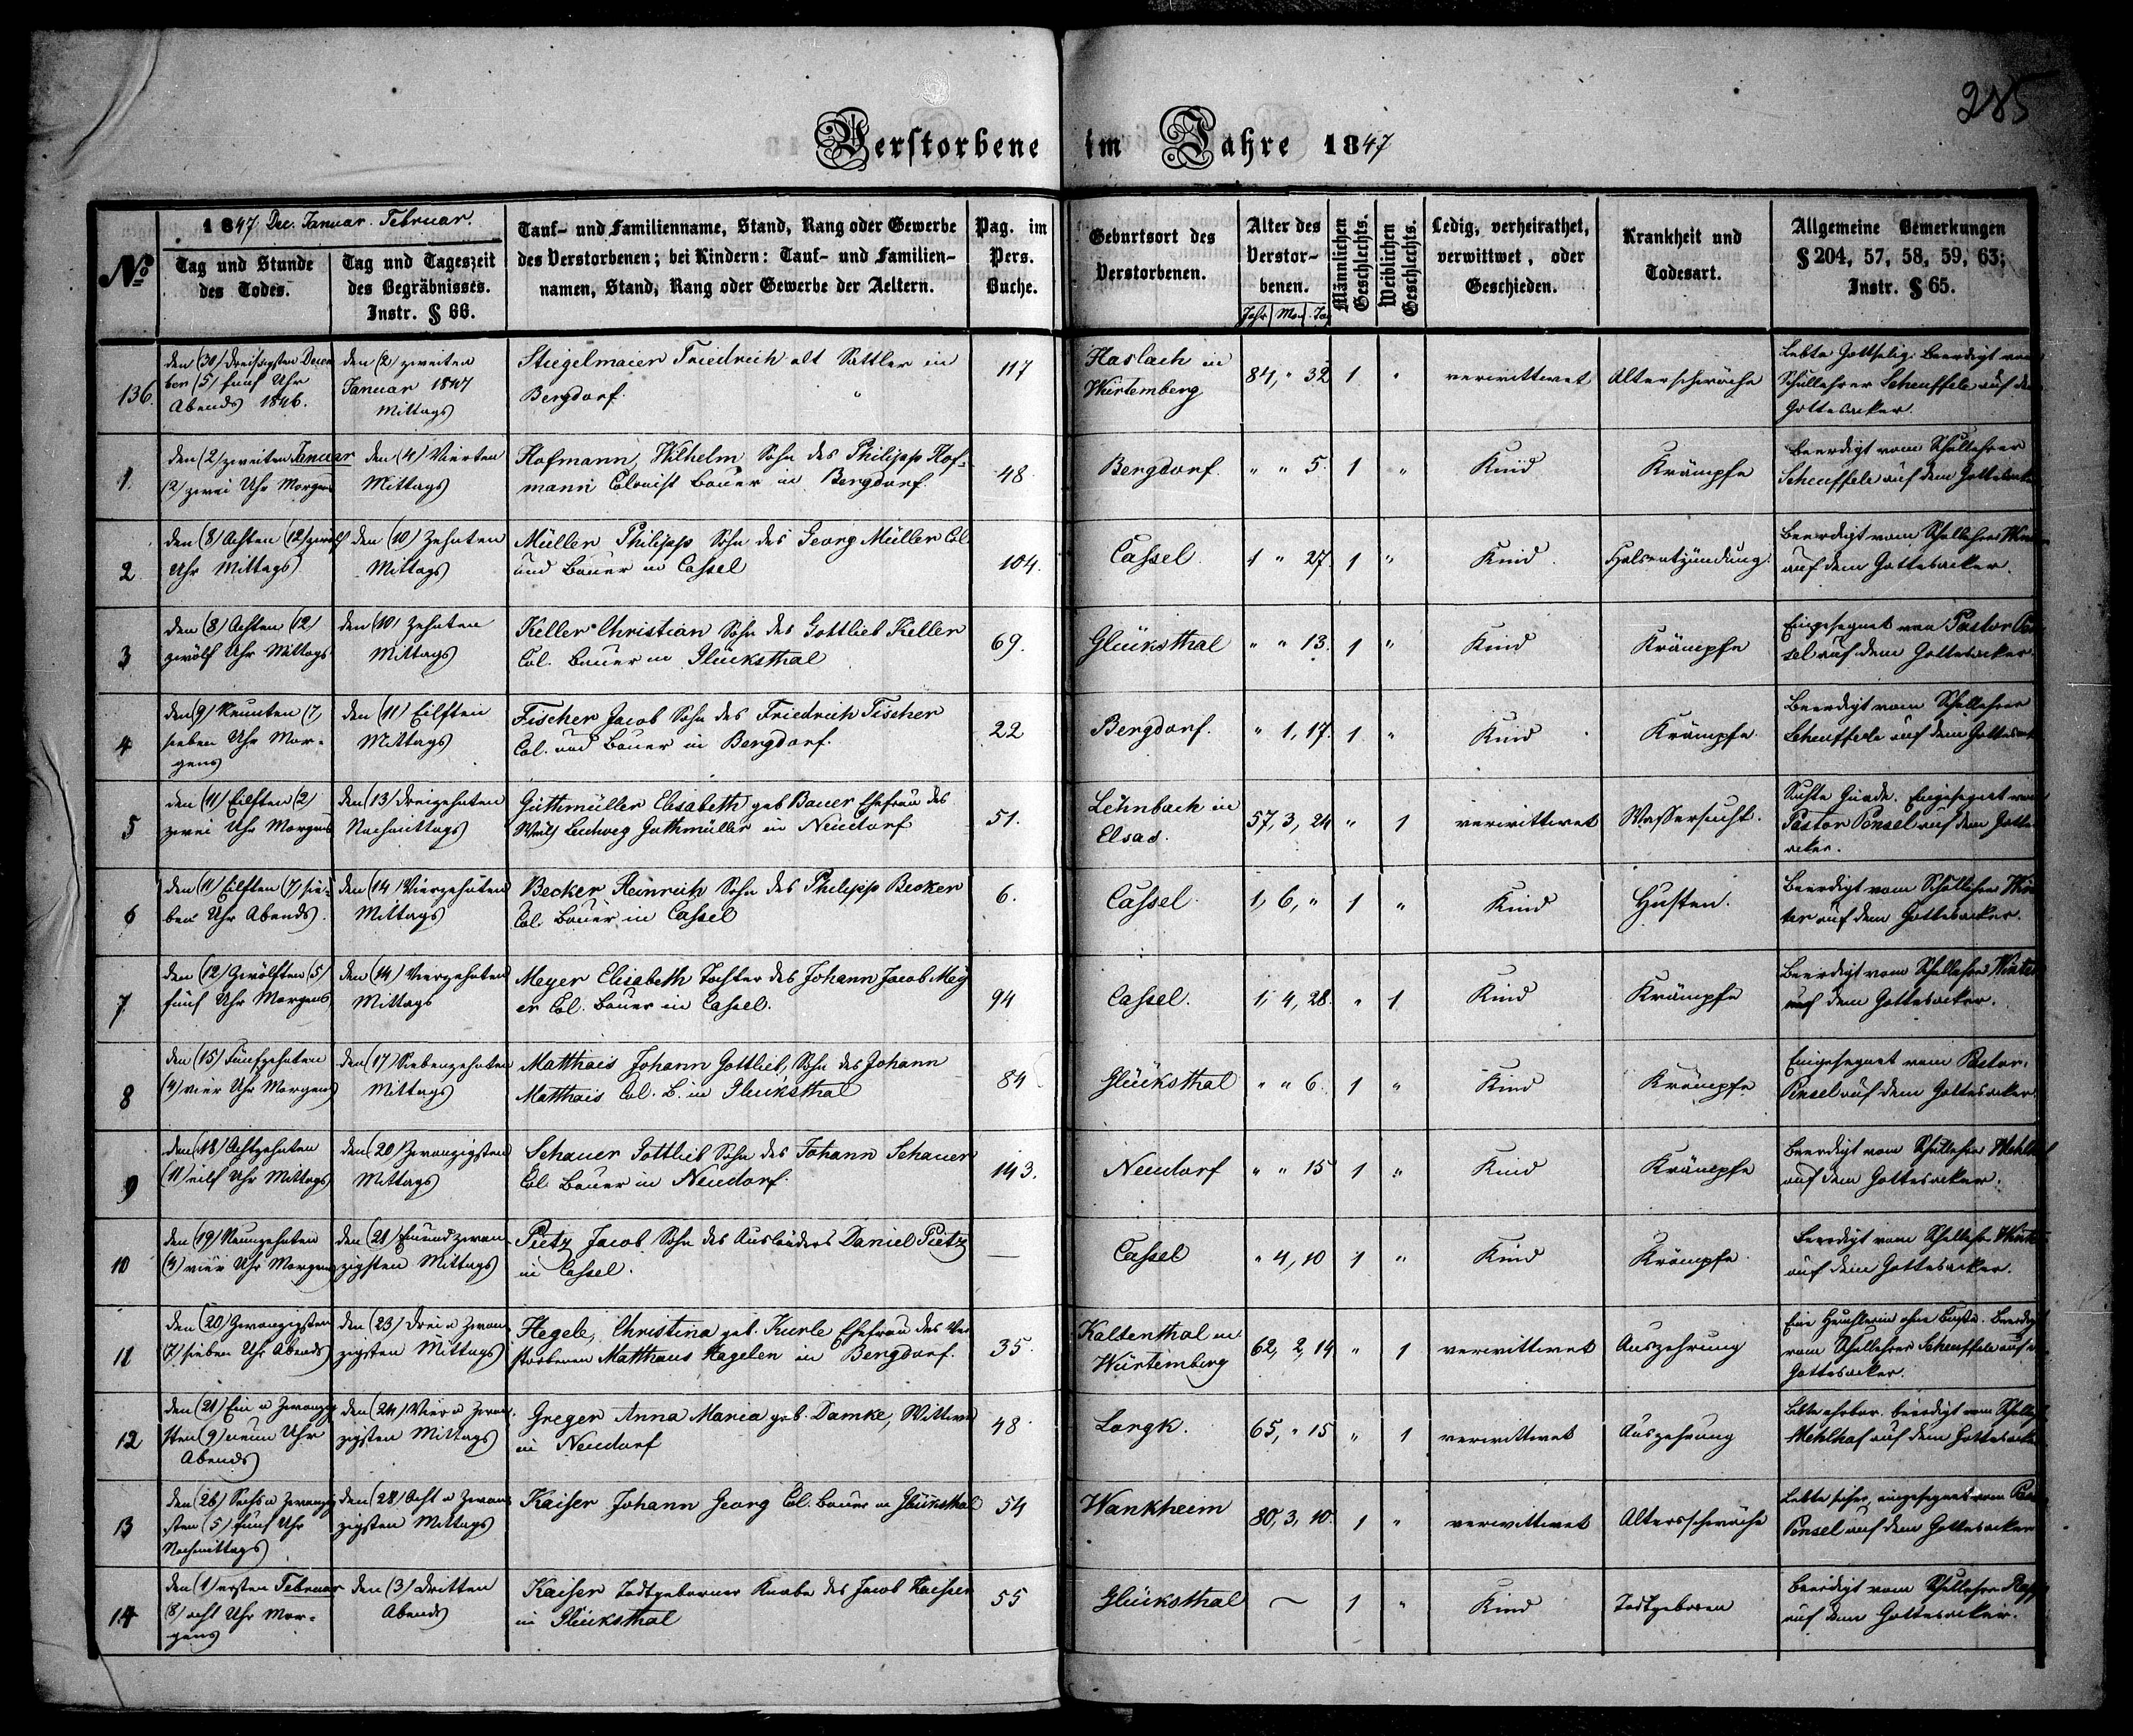 285
Verstorbene im Jahre 1847
№
1847 Dec. Januar. Februar.
Tag und Stunde
des Todes.
Tag und Tageszeit
des Begräbnisses.
Instr. § 66.
Tauf- und Familienname, Stand, Rang oder Gewerbe
des Verstorbenen; bei Kindern: Tauf- und Familien-
namen, Stand, Rang oder Gewerbe der Aeltern.
Pag. im
Pers.
Buche.
Geburtsort des
Verstorbenen.
Alter des
Verstor-
benen.
Jahr Mon. Tag
Männlichen
Geschlechts.
Weiblichen
Geschlechts.
Ledig, verheirathet,
verwittwet, oder
Geschieden.
Krankheit und
Todesart.
Allgemeine Bemerkungen
§ 204, 57, 58, 59, 63;
Instr. § 65.
136.
den (30) dreißigsten Decem
ber (5) fünf Uhr
Abends 1846.
den (2) zweiten
Januar 1847
Mittags
Stiegelmaier Friedrich alt Sattler in
Bergdorf.
117
Haslach in
Würtemberg
84, " 32
1
"
verwittwet
Altersschwäche
Lebte gottselig. Beerdigt vom
Schullehrer Scheuffele auf dem
Gottesacker.
1.
den (2) zweiten Januar
(2) zwei Uhr Morgens
den (4) Vierten
Mittags
Hofmann, Wilhelm Sohn des Philipp Hof-
mann Colonist Bauer in Bergdorf.
48
Bergdorf.
" " 5.
1
"
Kind
Krämpfe
Beerdigt vom Schullehrer
Scheuffele auf dem Gottesacker
2
den (8) Achten (12) zwölf
Uhr Mittags
den (10) Zehnten
Mittags
Müller Philipp Sohn des Georg Müller Col
und Bauer in Cassel
104.
Cassel.
1 " 27.
1
"
Kind.
Halsentzündung.
Beerdigt vom Schullehrer
auf dem Gottesacker.
3
den (8) Achten (12)
zwölf Uhr Mittags
den (10) Zehnten
Mittags
Keller Christian Sohn des Gottlieb Keller
Col. Bauer in Glücksthal
69.
Glücksthal
" " 13.
1
"
Kind
Krämpfe
Eingesegnet von Pastor Pen
sel auf dem Gottesacker.
4
den (9) Neunten (7)
sieben Uhr Mor-
gens
den (11) Eilften
Mittags
Fischer Jacob Sohn des Friedrich Fischer
Col. und Bauer in Bergdorf.
22
Bergdorf.
" 1, 17.
1
"
Kind
Krämpfe.
Beerdigt vom Schullehrer
Scheuffele auf dem Gottesack
5
den (11) Eilften (2)
zwei Uhr Morgens
den (13) dreizehnten
Nachmittags
Guthmüller Elisabeth geb Bauer Ehefrau des
Ludweg Guthmüller in Neudorf
51.
Leimbach in
Elsas.
57, 3, 24
"
1
verwittwet
Wassersucht.
Suchte Gnade. Eingesegnet vom
Pastor Pensel auf dem Gottes
acker.
6
den (11) Eilften (7) sie-
ben Uhr Abends.
den (14) Vierzehnten
Mittags
Becker Heinrich Sohn des Philipp Becker
Col. Bauer in Cassel
6.
Cassel.
1, 6, "
1
"
Kind
Husten.
Beerdigt vom Schullehrer Win
ter auf dem Gottesacker.
7
den (12) Zwölften (5)
fünf Uhr Morgens
den (14) Vierzehnten
Mittags
Meyer Elisabeth Tochter des Johann Jacob Mey
er Col. Bauer in Cassel.
94
Cassel.
1, 4, 28.
"
1
Kind
Krämpfe
Beerdigt vom Schullehrer Winter
auf dem Gottesacker.
8
den (15) Fünfzehnten
(4) vier Uhr Morgens
den (17) Siebenzehnten
Mittags
Matthais Johann Gottlieb, Sohn des Johann
Matthais Col. B. in Glücksthal
84
Glücksthal
" " 6.
1
"
Kind
Krämpfe
Eingesegnet vom Pastor.
Pensel auf dem Gottesacker
9
den (18) Achtzehnten
(11) eilf Uhr Mittags
den (20) Zwanzigsten
Mittags
Schauer Gottlieb Sohn des Johann Schauer
Col. Bauer in Neudorf.
143.
Neudorf
" " 15
1
"
Kind
Krämpfe
Beerdigt vom Schullehrer Mehlhaf
auf dem Gottesacker.
10
den (19) Neunzehnten
(4) vier Uhr Morgens
den (21) Einundzwan
zigsten Mittags
Pietz Jacob Sohn des Ausländers Daniel Pietz
in Cassel.
—
Cassel
" 4, 10
1
"
Kind
Krämpfe.
Beerdigt vom Schullehr Winter
auf dem Gottesacker.
11
den (20) Zwanzigsten
(7) sieben Uhr Abends
den (23) Drei u Zwan
zigsten Mittags
Hegele, Christina geb. Kurle Ehefrau des Ver
storbenen Matthäus Hagelen in Bergdorf.
35.
Kaltenthal in
Würtemberg
62, 2, 14
"
1
verwittwet
Auszehrung
Eine Heuchlerin ohne Buße. Beerdigt
vom Schullehrer Scheuffele auf d
Gottesacker.
12
den (21) Ein u Zwanzig
sten (9) neun Uhr
Abends
den (24) Vier u Zwan
zigsten Mittags
Greger Anna Maria geb. Damke, Wittwe
in Neudorf
48
Largk.
65, " 15
"
1
verwittwet
Auszehrung
Lebte ehrbar. beerdigt vom Schulleh
Mehlhaf auf dem Gottesacker
13
den (26) Sechs u Zwanzig
sten (5) fünf Uhr
Nachmittags
den (28) Acht u Zwan
zigsten Mittags
Kaiser Johann Georg Col. Bauer in Glücksthal
54
Wankheim
80, 3, 10.
1
"
verwittwet
Altersschwäche
Lebte eingesegnet vom Pas
Pensel auf dem Gottesacker
14
den (1) ersten Februar
(8) acht Uhr Mor-
gens
den (3) dritten
Abends
Kaiser Todtgeborner Knabe des Jacob Kaiser
in Glücksthal
55
Glücksthal
~
1
"
Kind
Todtgeboren
Beerdigt vom Schullehrer
auf dem Gottesacker.